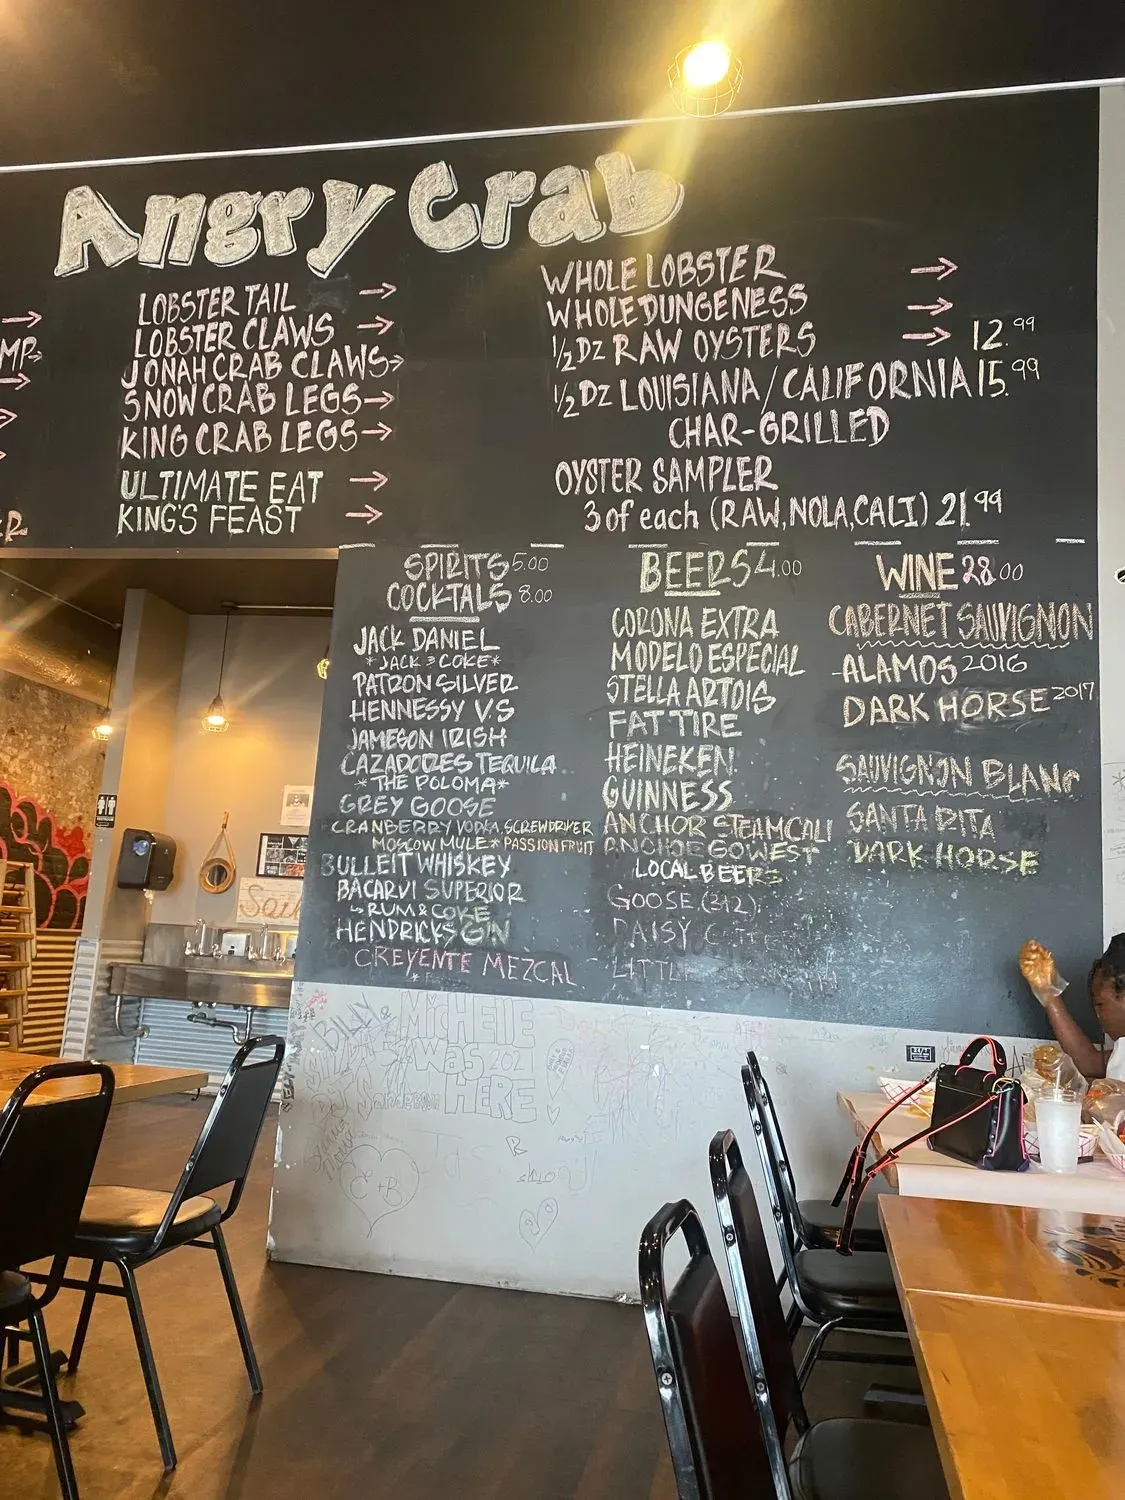 Angry Crab
MP
R
LOBSTER TAIL →
LOBSTER CLAWS →
JONAH CRAB CLAWS →
SNOW CRAB LEGS →
KING CRAB LEGS →
ULTIMATE EAT →
KING'S FEAST →
WHOLE LOBSTER →
WHOLE DUNGENESS →
1/2 DZ RAW OYSTERS → 12.99
1/2 DZ LOUISIANA / CALIFORNIA 15.99
CHAR-GRILLED
OYSTER SAMPLER
3 of each (RAW, NOLA, CALI) 21.99
SPIRITS 5.00
COCKTALS 8.00
JACK DANIEL
*JACK & COKE*
PATRON SILVER
HENNESSY V.S
JAMESON IRISH
CAZADORES TEQUILA
*THE POLOMA*
GREY GOOSE
CRANBERRY VODKA, SCREWDRIVER
MOSCOW MULE * PASSION FRUIT
BULLEIT WHISKEY
BACARVI SUPERIOR
↳ RUM & COKE
HENDRICKS GIN
CREYENTE MEZCAL
BEERS 4.00
CORONA EXTRA
MODELO ESPECIAL
STELLA ARTOIS
FAT TIRE
HEINEKEN
GUINNESS
ANCHOR STEAM CALI
ANCHOR GOWEST
LOCAL BEERS
GOOSE (312)
DAISY
LITTLE
WINE 28.00
CABERNET SAUVIGNON
-ALAMOS 2016
DARK HORSE 2017
SAUVIGNON BLANC
SANTA RITA
DARK HORSE
BILLY
MiCHElle
was 2021
HERE
C + B